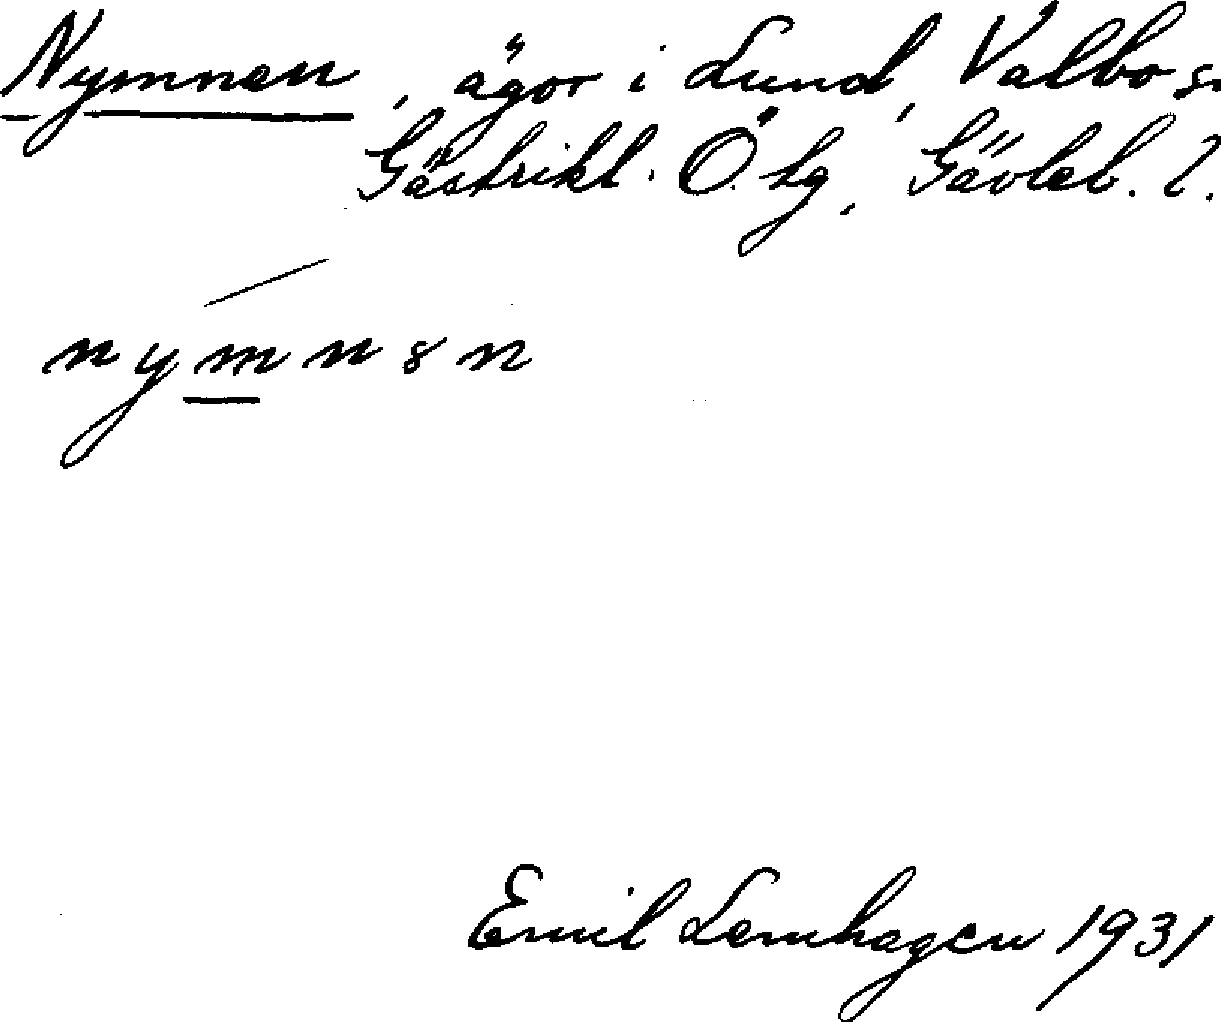 Nymnen, ägor i Lund, Valbo sn
Gästrikl. Ö. tg, Gävleb. l.
nymnən
Emil Lernhagen 1931